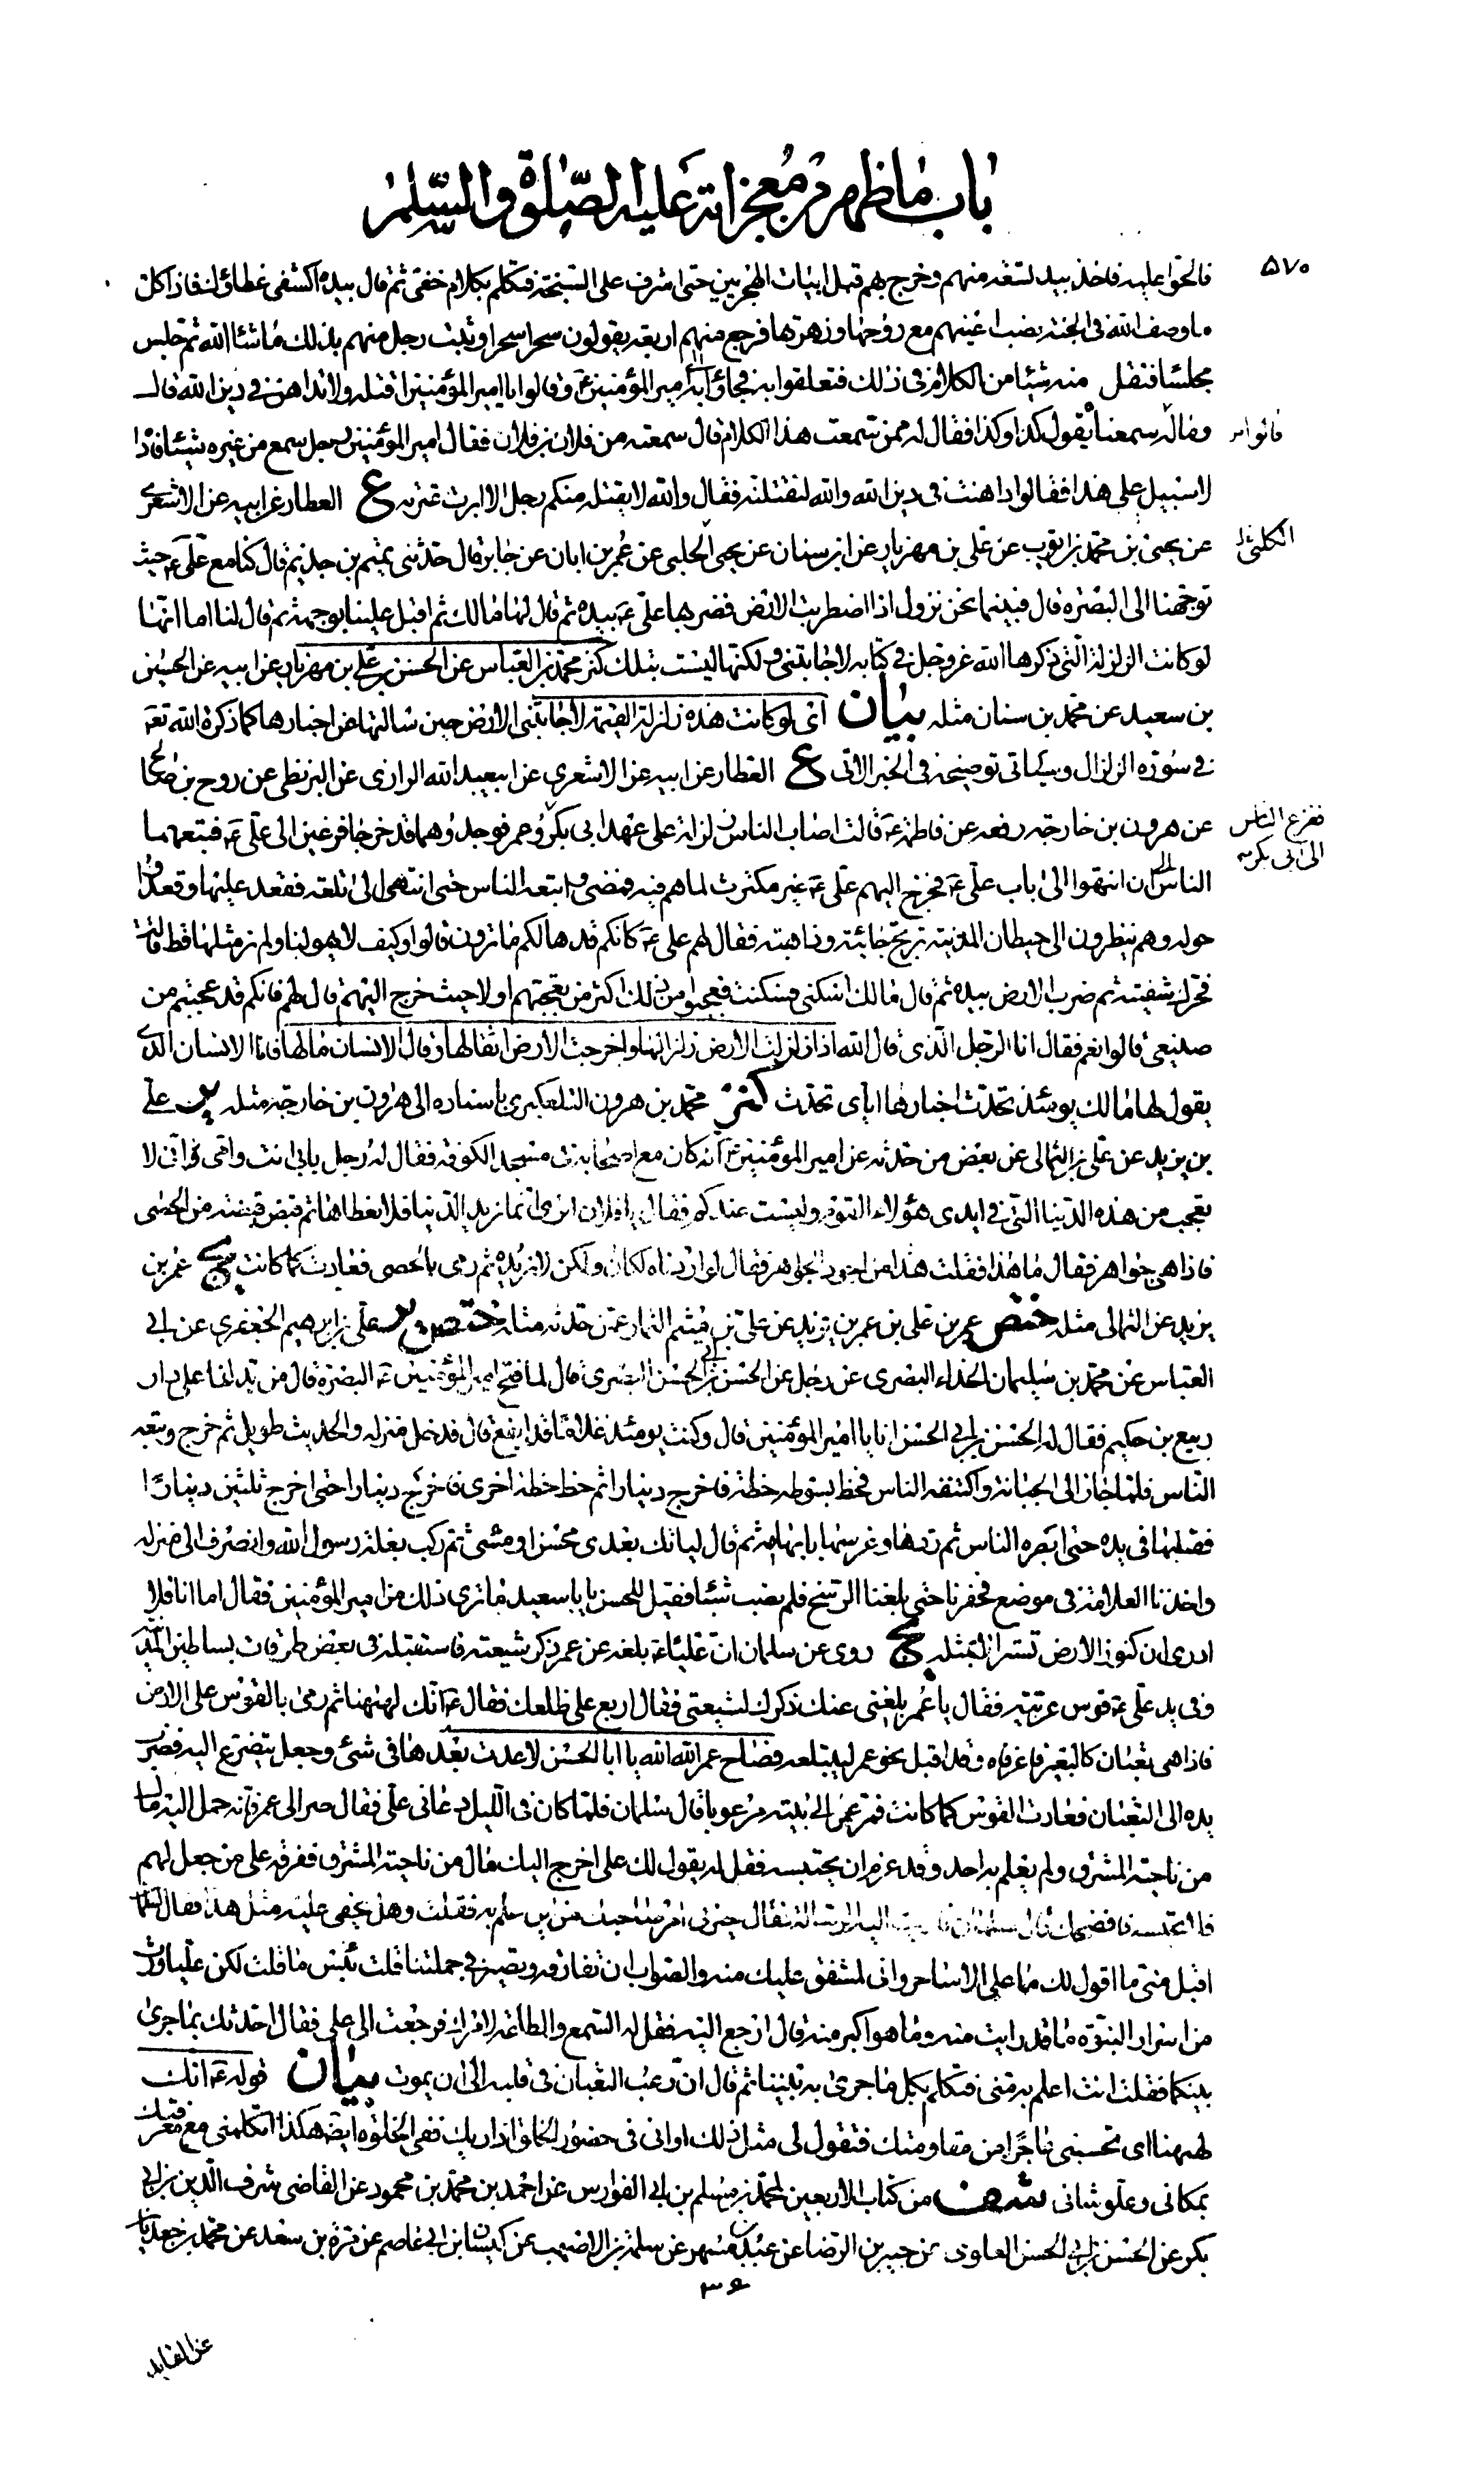 باب ما ظهر من معجزاته عليه الصلوة والسلم
۵۷۰
فالحوا عليه فاخذ بيد تسعة منهم وخرج بهم قبل ابيات الهجريين حتى اشرف على السبخة فتكلم بكلام خفى ثم قال بيده اكشفى غطائك فاذا كل
ما وصف الله فى الجنة نصب اعينهم مع روحها وزهرتها فرجع منهم اربعة يقولون سحرا سحرا وثبت رجل منهم بذلك ما شاء الله ثم جلس
مجلسا فنقل منه شيئا من الكلام فى ذلك فتعلقوا به فجاؤا به الى امير المؤمنين ع وقالوا يا امير المؤمنين اقتله ولا تداهن فى دين الله قال
وماله سمعناه يقول كذا وكذا فقال له ممن سمعت هذا الكلام قال سمعته من فلان بن فلان فقال امير المؤمنين رجل سمع من غيره شيئا فادا
قالوا
لا سبيل على هذا فقالوا داهنت فى دين الله والله لنقتلنه فقال والله لا يقتله منكم رجل الا ابرت عترته ع العطار عن ابيه عن الاشعرى
عن يحيى بن محمد بن ايوب عن على بن مهزيار عن ابن سنان عن يحيى الحلبى عن عمر بن ابان عن جابر قال حدثنى تميم بن جذيم قال كنا مع على ع حيث
توجهنا الى البصرة قال فبينما نحن نزول اذا اضطربت الارض فضربها على ع بيده ثم قال لها مالك ثم اقبل علينا بوجهه ثم قال لنا اما انها
لو كانت الزلزلة التى ذكرها الله عز وجل فى كتابه لاجابتنى ولكنها ليست بتلك كنز محمد بن العباس عن الحسن بن على بن مهزيار عن ابيه عن الحسين
بن سعيد عن محمد بن سنان مثله بيان اى لو كانت هذه زلزلة القيمة لاجابتنى الارض حين سالتها عن اخبارها كما ذكره الله تعه
فى سورة الزلزال وسياتى توضيحه فى الخبر الاتى ع القطار عن ابيه عن الاشعرى عن ابيعبد الله الرازى عن البزنطى عن روح بن صالح
عن هرون بن خارجة رفعه عن فاطمة ع قالت اصاب الناس زلزلة على عهد ابى بكر وعمر فوجدوهما قد خرجا فزعين الى على ع فتبعهما
ففزع الناس
الى ابى بكر
الناس الى ان انتهوا الى باب على ع فخرج اليهم على ع غير مكترث لما هم فيه فمضى واتبعه الناس حتى انتهى الى تلعة فقعد عليها وقعدوا
حوله وهم ينظرون الى حيطان المدينة ترتج جائية وذاهبة فقال لهم على ع كانكم قد هالكم ما ترون قالوا وكيف لا يهولنا ولم نر مثلها قط قالت
فحرك شفتيه ثم ضرب الارض بيده ثم قال مالك اسكنى فسكنت فعجبوا من ذلك اكثر من تعجبهم اولا حيث خرج اليهم قال لهم فانكم قد عجبتم من
صنيعى قالوا نعم فقال انا الرجل الذى قال الله اذا زلزلت الارض زلزالها واخرجت الارض اثقالها وقال الانسان مالها فانا الانسان الذى
يقول لها مالك يومئذ تحدث اخبارها اياى تحدث كنز محمد بن هرون التلعكبرى باسناده الى هارون بن خارجة مثله ير على
بن يزيد عن على بن الثمالى عن بعض من حدثه عن امير المؤمنين ع انه كان مع اصحابه فى مسجد الكوفة فقال له رجل بابى انت وامى انى لا
تعجب من هذه الدنيا التى فى ايدى هؤلاء القوم وليست عندكم فقال يا فلان اترى انما نريد الدنيا فلا نعطاها ثم قبض قبضة من الحصى
فاذا هى جواهر فقال ما هذا فقلت هذا من اجود الجواهر فقال لو اردناه لكان ولكن لا نريده ثم رمى بالحصى فعادت كما كانت يج عمر بن
يزيد عن الثمالى مثله ختص عمر بن على بن عمر بن يزيد عن على بن ميثم التمار عمن حدثه مثله ختص ير على بن ابرهيم الجعفرى عن ابى
العباس عن محمد بن سليمان الحذاء البصرى عن رجل عن الحسن بن ابى الحسن البصرى قال لما فتح امير المؤمنين ع البصرة قال من يدلنا على دار
ربيع بن حكيم فقال له الحسن بن ابى الحسن انا يا امير المؤمنين قال وكنت يومئذ غلاما قد ايفع قال فدخل منزله والحديث طويل ثم خرج وتبعه
الناس فلما جاز الى الجبانة واكتنفه الناس فخط بسوطه خطة فاخرج دينارا ثم خط خطة اخرى فاخرج دينارا حتى اخرج ثلثين دينارا
فقلبها فى يده حتى ابصره الناس ثم ردها وغرسها بابهامه ثم قال ليأتك بعدى محسن او مسئ ثم ركب بغلة رسول الله وانصرف الى منزله
واخذنا العلامة فى موضع فحفرنا حتى بلغنا الرسخ فلم نصب شيئا فقيل للحسن يابا سعيد ما ترى ذلك من امير المؤمنين فقال اما انا فلا
ادرى ان كنوز الارض تسير الا بمثله يج روى عن سلمان ان عليا ع بلغه عن عمر ذكر شيعته فاستقبله فى بعض طرقات بساطين المدينة
وفى يد على ع قوس عربية فقال يا عمر بلغنى عنك ذكرك لشيعتى فقال اربع على ظلعك فقال ع انك لههنا ثم رمى بالقوس على الارض
فاذا هى ثعبان كالبعير فاغرفاه وقد اقبل نحو عمر ليبتلعه فصاح عمر الله الله يا ابا الحسن لا عدت بعدها فى شئ وجعل يتضرع اليه فضرب
يده الى الثعبان فعادت القوس كما كانت فمر عمر الى بيته مرعوبا قال سلمان فلما كان فى الليل دعانى على فقال صر الى عمر فانه حمل اليه مال
من ناحية المشرق ولم يعلم به احد وقد عزم ان يحتبسه فقل له يقول لك على اخرج اليك مال من ناحية المشرق ففرقه على من جعل لهم
ولا تحتبسه فافضحك قال سلمان فاديت اليه الرسالة فقال حيرنى امر صاحبك من اين علم به فقلت وهل يخفى عليه مثل هذا فقال لسلمان
اقبل منى ما اقول لك ما على الا ساحر وانى لمشفق عليك منه والصواب ان تفارقه وتصير فى جملتنا قلت بئس ما قلت لكن عليا ورث
من اسرار النبوة ما قد رايت منه وما هو اكبر منه قال ارجع اليه فقل له السمع والطاعة لامرك فرجعت الى على فقال احدثك بما جرى
بينكما فقلت انت اعلم به منى فتكلم بكل ما جرى به بيننا ثم قال ان رعب الثعبان فى قلبه الى ان يموت بيان قوله ع انك
لههنا اى تحسبنى عاجزا من مقاومتك فتقول لى مثل ذلك او انى فى حضور الخلق اداريك ففى الخلوة ايضه هكذا اتكلمنى مع معرفتك
بمكانى وعلو شانى شف من كتاب الاربعين لمحمد بن مسلم بن ابى الفوارس عن احمد بن محمد بن محمود عن القاضى شرف الدين بن ابى
بكر عن الحسن بن ابى الحسن العلوى عن جبير بن الرضا عن عبد بن مسهر عن سلمة بن الاصهب عن كيسان بن ابى عاصم عن مرة بن سعد عن محمد بن جعديان